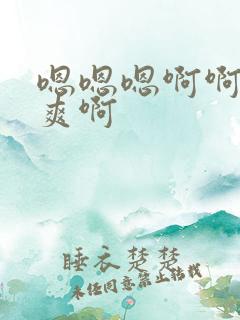 嗯嗯嗯啊啊
爽啊
睡衣楚楚
未经同意禁止转载